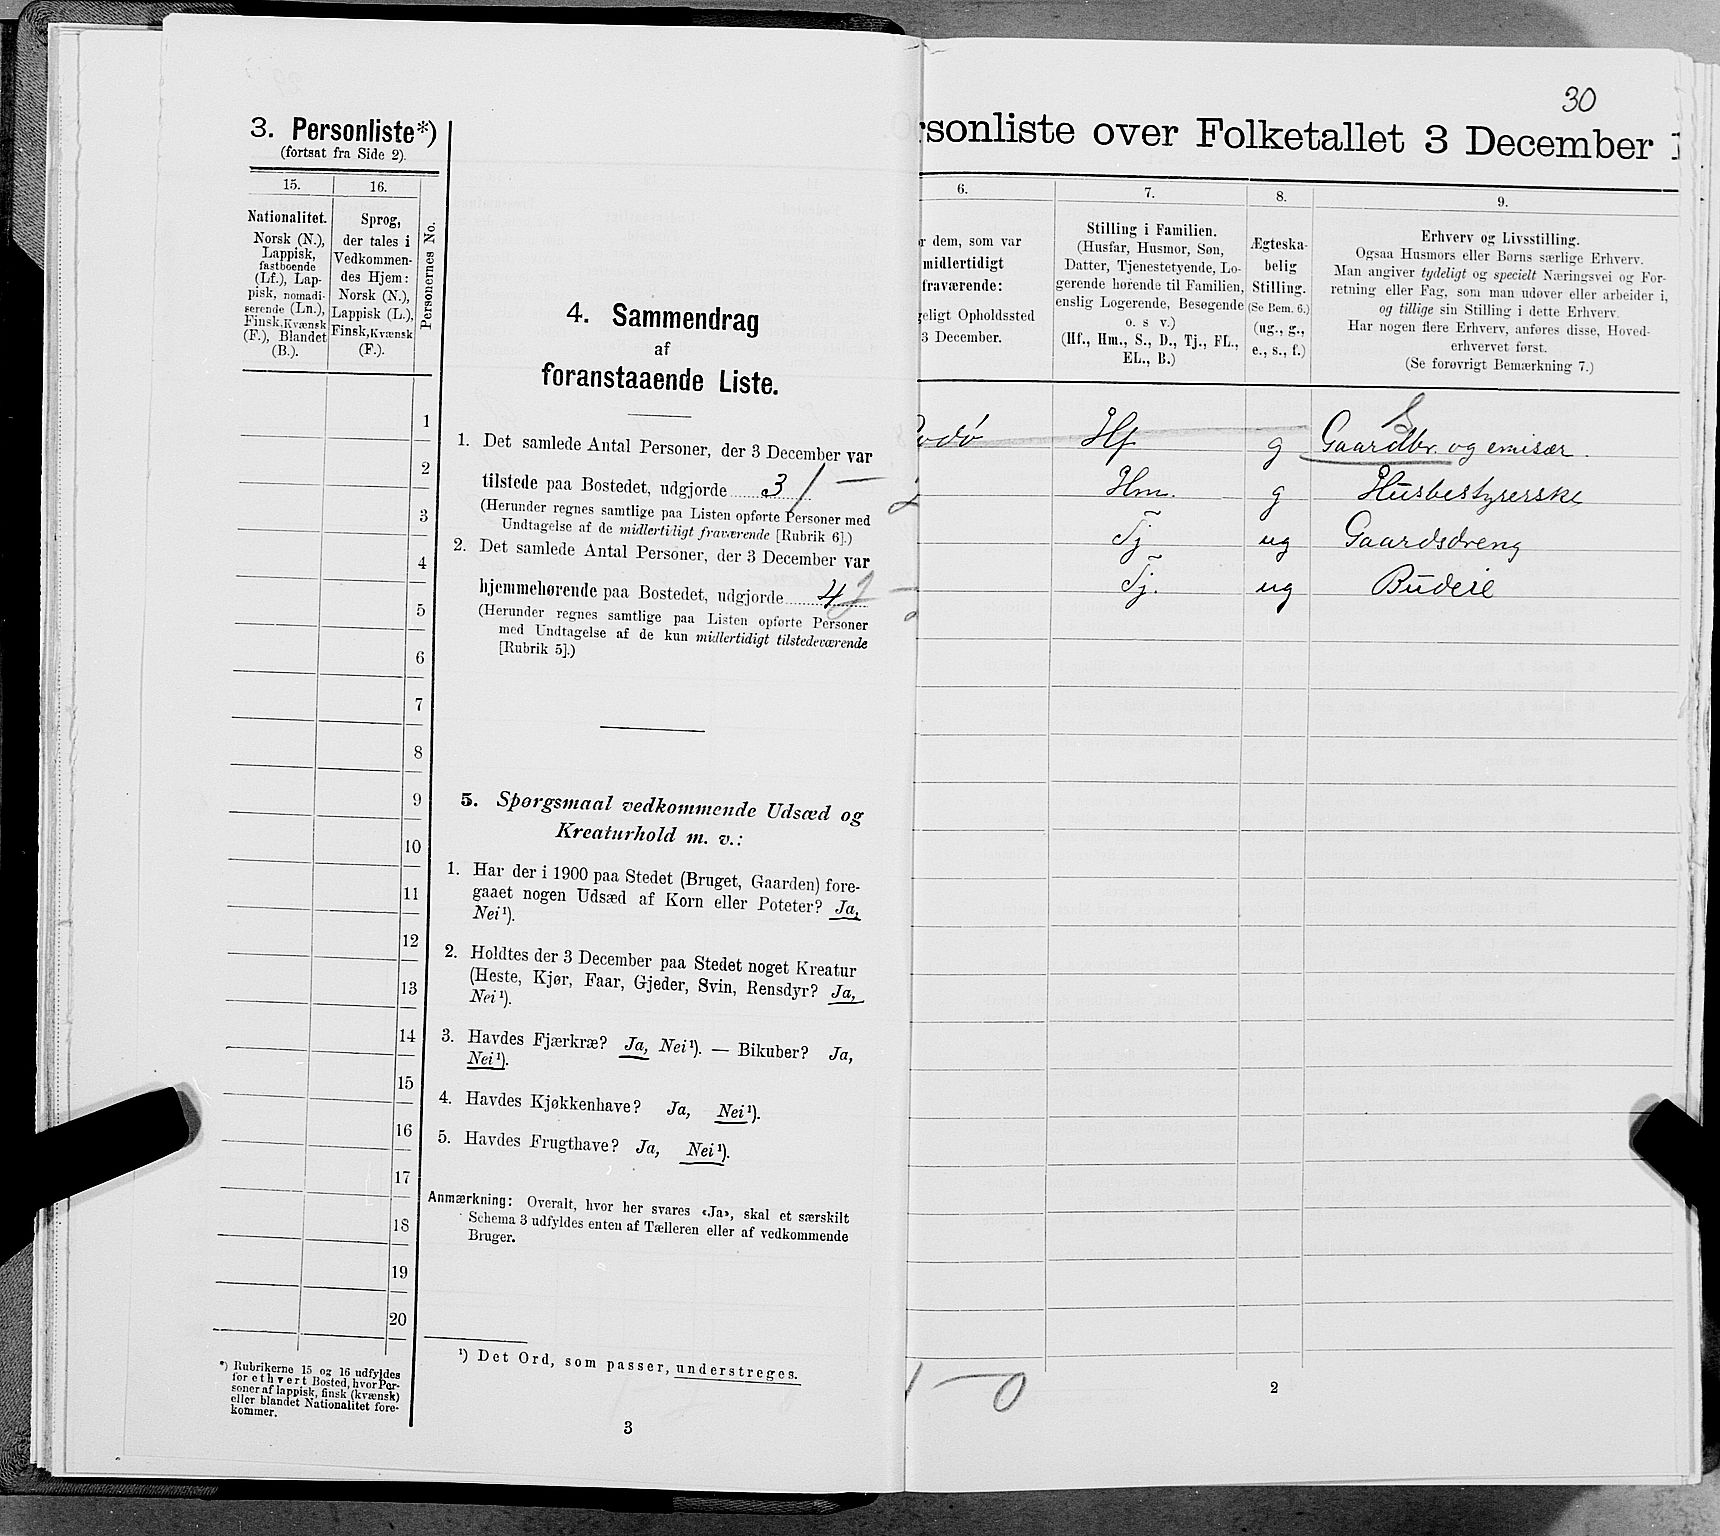 3. Personliste*)
(fortsat fra Side 2).
15.
16.
Personernes No.
Nationalitet.
Norsk (N.),
Lappisk,
fastboende
(Lf.), Lap-
pisk, nomadi-
serende (Ln.),
Finsk, Kvænsk
(F.), Blandet
(B.).
Sprog,
der tales i
Vedkommen-
des Hjem:
Norsk (N.),
Lappisk (L.),
Finsk, Kvænsk
(F.).
1
2
3
4
5
6
7
8
9
10
11
12
13
14
15
16
17
18
19
20
*) Rubrikerne 15 og 16 udfyldes
for ethvert Bosted, hvor Per-
soner af lappisk, finsk (kvænsk)
eller blandet Nationalitet fore-
kommer.
4. Sammendrag
af
foranstaaende Liste.
1. Det samlede Antal Personer, der 3 December var
tilstede paa Bostedet, udgjorde 3
(Herunder regnes samtlige paa Listen opførte Personer med
Undtagelse af de midlertidigt fraværende [Rubrik 6].)
2. Det samlede Antal Personer, der 3 December var
hjemmehørende paa Bostedet, udgjorde 4
(Herunder regnes samtlige paa Listen opførte Personer
med Undtagelse af de kun midlertidigt tilstedeværende
[Rubrik 5].)
5. Spørgsmaal vedkommende Udsæd og
Kreaturhold m. v.:
1. Har der i 1900 paa Stedet (Bruget, Gaarden) fore-
gaaet nogen Udsæd af Korn eller Poteter? Ja,
Nei¹).
2. Holdtes der 3 December paa Stedet noget Kreatur
(Heste, Kjør, Faar, Gjeder, Svin, Rensdyr? Ja,
Nei¹).
3. Havdes Fjærkræ? Ja, Nei¹). — Bikuber? Ja,
Nei¹).
4. Havdes Kjøkkenhave? Ja, Nei¹).
5. Havdes Frugthave? Ja, Nei¹).
Anmærkning: Overalt, hvor her svares «Ja», skal et særskilt
Schema 3 udfyldes enten af Tælleren eller af vedkommende
Bruger.
¹) Det Ord, som passer, understreges.
3
30
rsonliste over Folketallet 3 December 1
6.
7.
8.
9.
r dem, som var
midlertidigt
fraværende:
geligt Opholdssted
3 December.
Stilling i Familien.
(Husfar, Husmor, Søn,
Datter, Tjenestetyende, Lo-
gerende hørende til Familien,
enslig Logerende, Besøgende
o. s v.)
(Hf., Hm., S., D., Tj., FL.,
EL., B.)
Ægteska-
belig
Stilling.
(Se Bem. 6.)
(ug., g.,
e., s., f.)
Erhverv og Livsstilling.
Ogsaa Husmors eller Børns særlige Erhverv.
Man angiver tydeligt og specielt Næringsvei og For-
retning eller Fag, som man udøver eller arbeider i,
og tillige sin Stilling i dette Erhverv.
Har nogen flere Erhverv, anføres disse, Hoved-
erhvervet først.
(Se forøvrigt Bemærkning 7.)
odø Hf g Gaardbr. og emisær.
Hm. g Husbestyrerske
Tj ug Gaardsdreng
Tj. ug Budeie
0
2